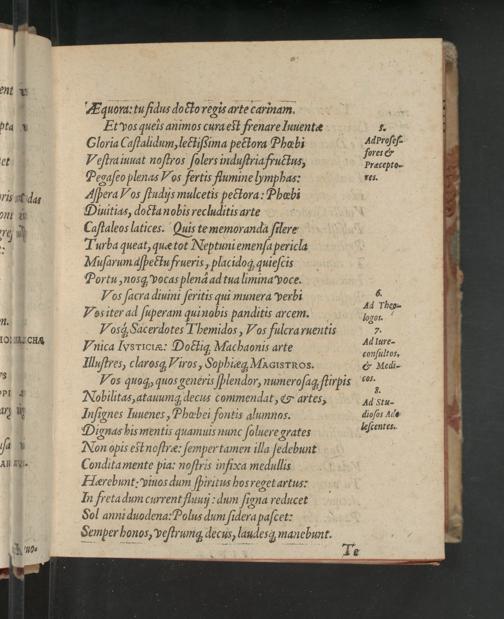 Æquora: tu fidus docto regis arte carinam.
Et vos queîs animos cura est frenare Iuventæ
Gloria Castalidum, lectißima pectora Phœbi
Vestra iuvat nostros solers industria fructus,
Pegaseo plenas Vos fertis flumine lymphas:
Aspera Vos studijs mulcetis pectora: Phœbi
Divitias, docta nobis recluditis arte
Castaleos latices. Quis te memoranda silere
Turba queat, quæ tot Neptuni emensa pericla
Musarum aspectu frueris, placidoq́; quiescis
Portu, nosq́; vocas plenâ ad tua limina voce.
Vos sacra divini seritis qui munera verbi
Vos iter ad superam qui nobis panditis arcem.
Vosq́; Sacerdotes Themidos, Vos fulcra ruentis
Vnica IVSTICIÆ: Doctiq́; Machaonis arte
Illustres, clarosq́; Viros, Sophiæq́; MAGISTROS.
Vos quoq́;, quos generis splendor, numerosaq́; stirpis
Nobilitas, atavumq́; decus commendat, & artes,
Insignes Iuvenes, Phœbei fontis alumnos.
Dignas his mentis quamuis nunc solvere grates
Non opis est nostræ: semper tamen illa sedebunt
Condita mente pia: nostris infixa medullis
Hærebunt: vivos dum spiritus hos reget artus:
In freta dum current fluvij: dum signa reducet
Sol anni duodena: Polus dum sidera pascet:
Semper honos, vestrumq́; decus, laudesq́; manebunt.
Te
5.
Ad Profes-
sores &
Præcepto-
res.
6.
Ad Theo-
logos.
7.
Ad Iure-
consultos,
& Medi-
cos.
8.
Ad Stu-
diosos Ado-
lescentes.